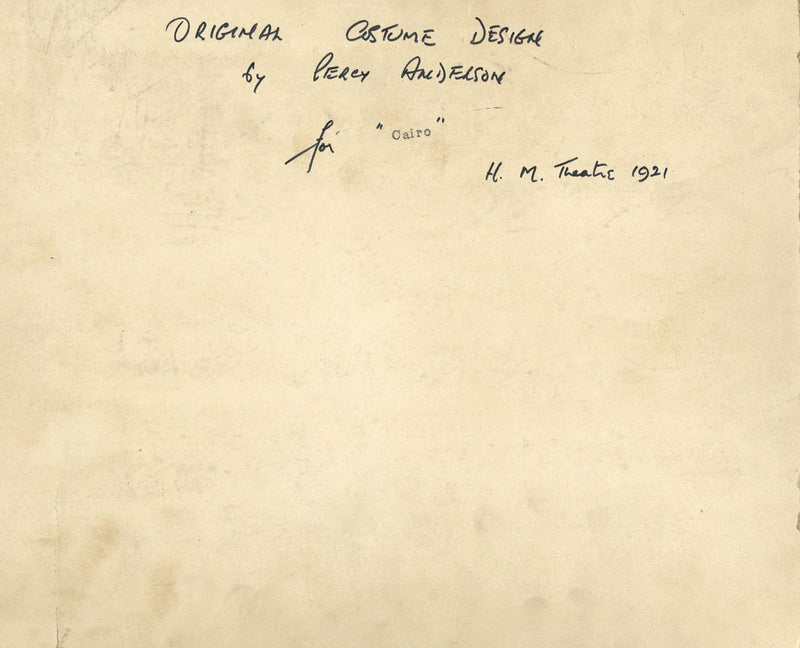 ORIGINAL COSTUME DESIGN
by PERCY ANDERSON
for "Cairo"
H. M. Theatre 1921